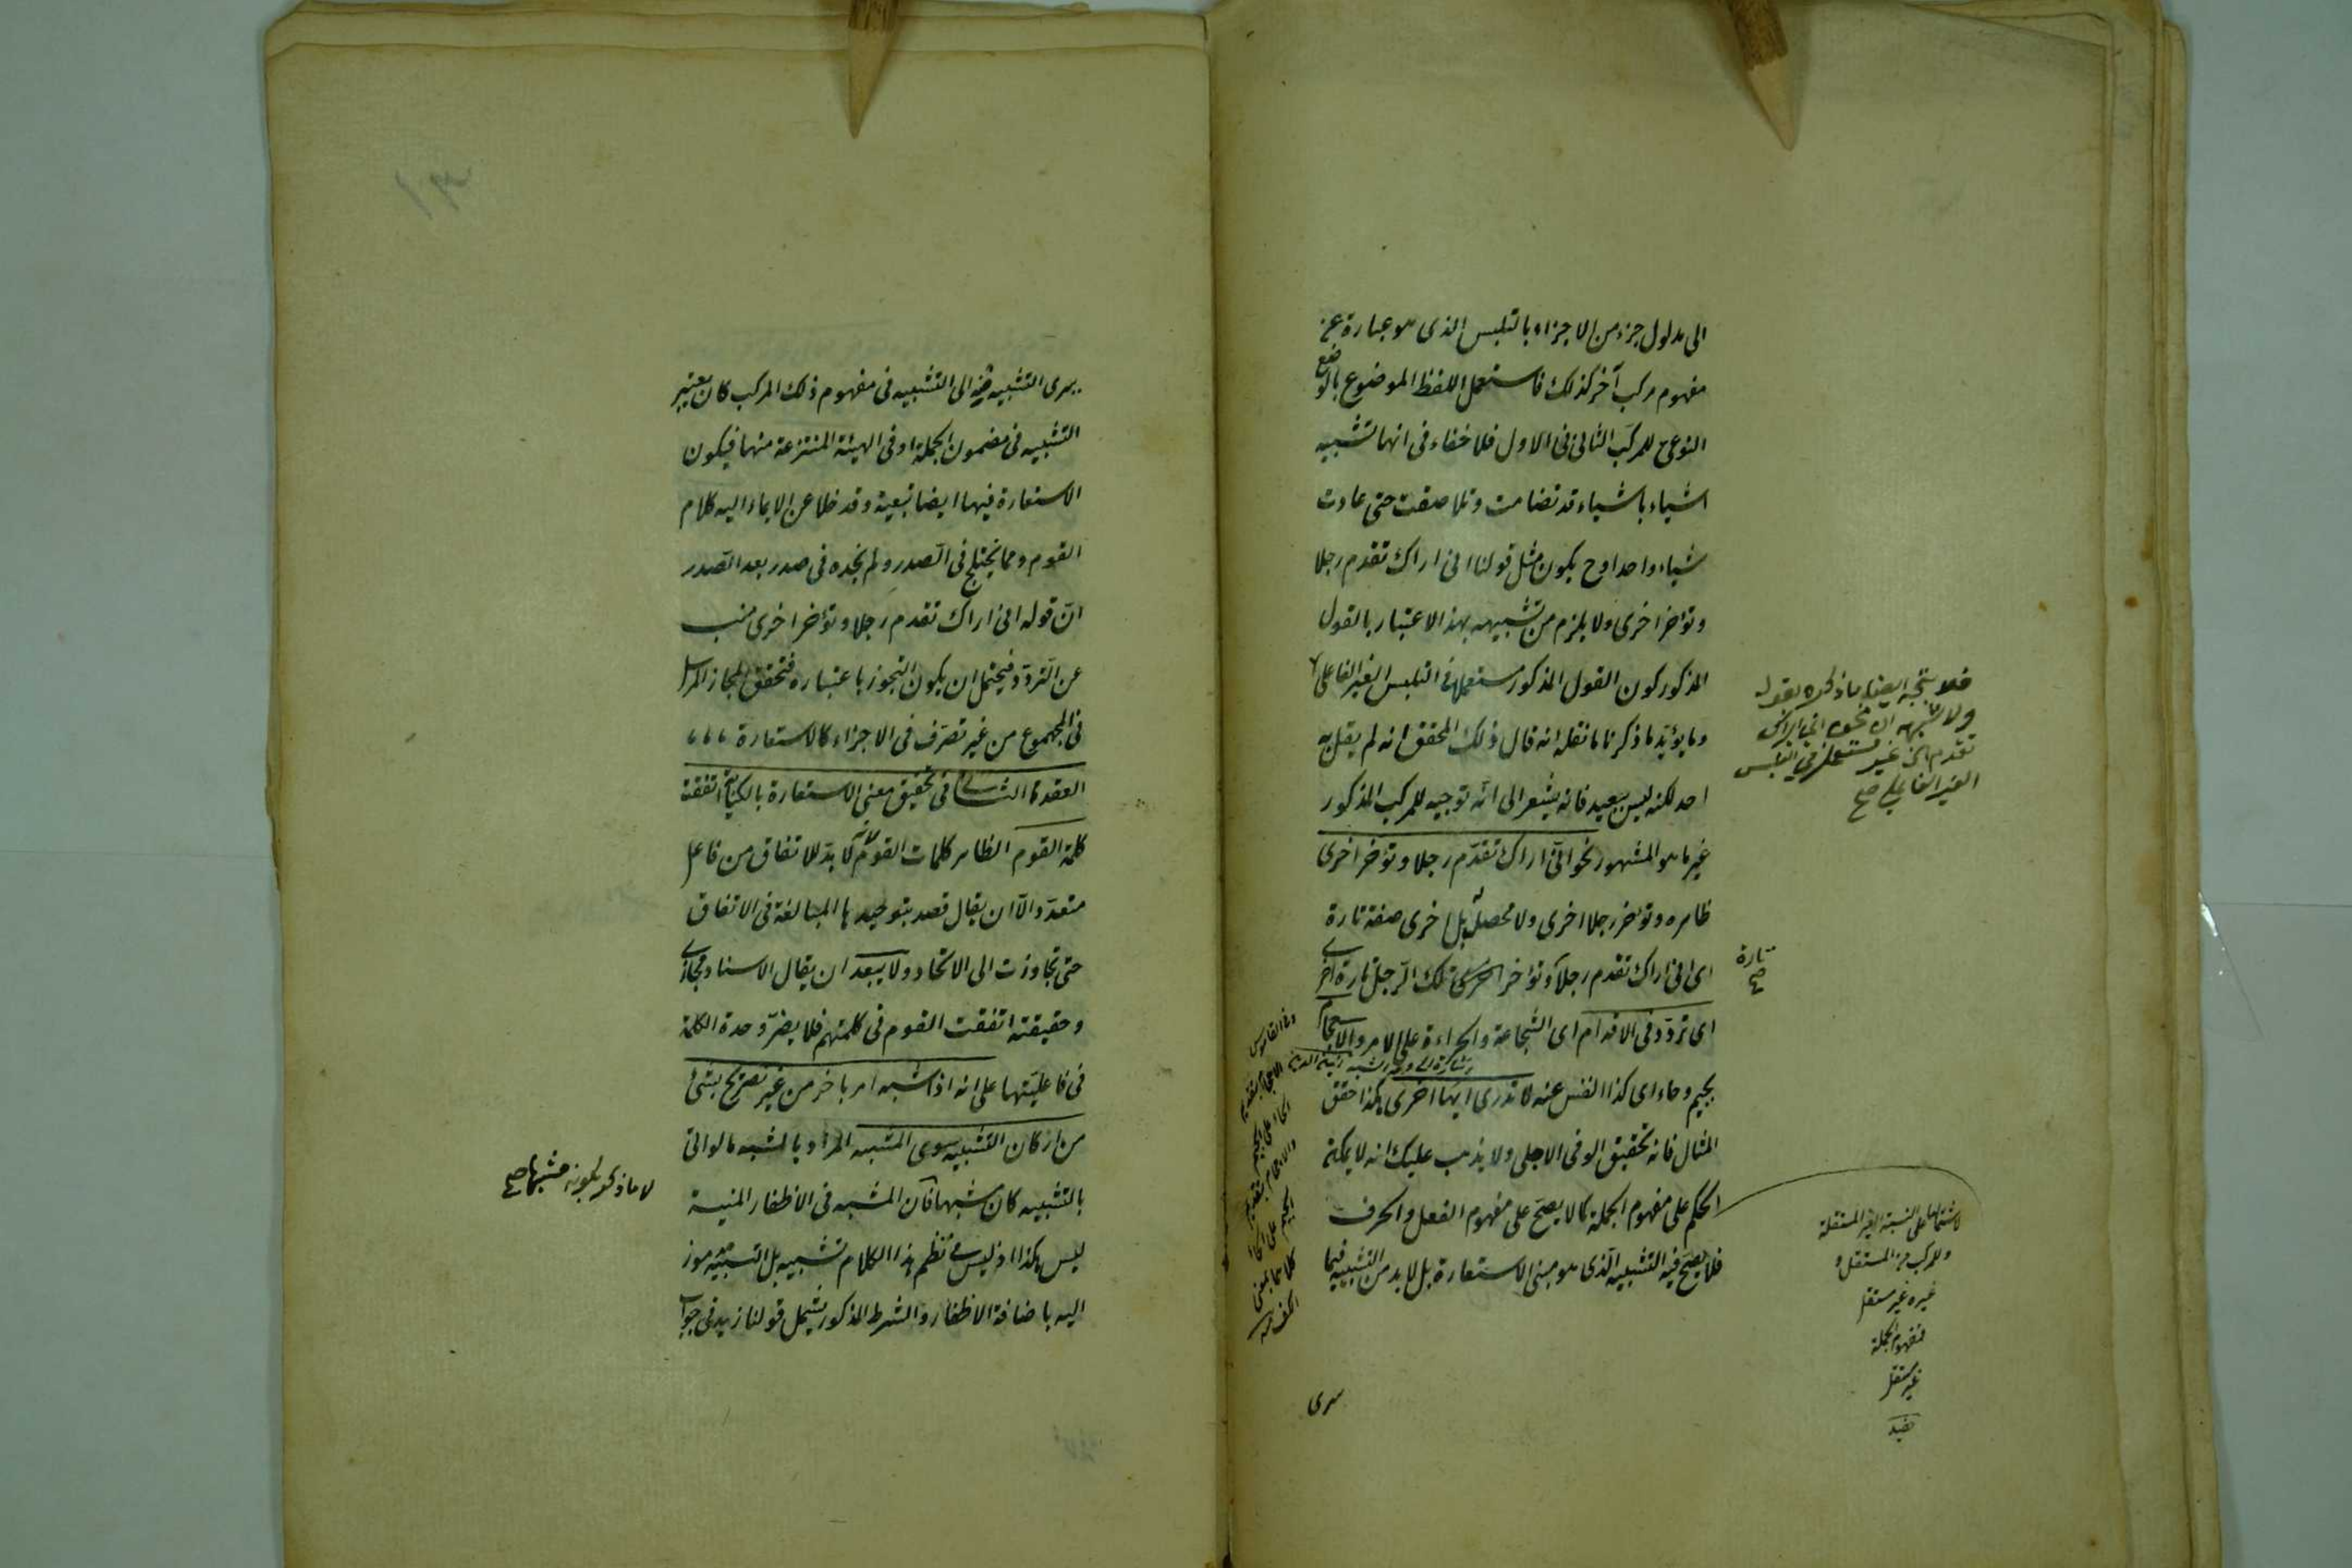 الى مدلول جزء من الاجزاء بالتلبس الذى هو عبارة عن
مفهوم مركب آخر كذلك فاستعمل اللفظ الموضوع بالوضع
النوعى للمركب الثانى فى الاول فلا خفاء فى انها تشبيه
اشياء باشياء قد تضامت وتلاصقت حتى عادت
شياء واحدا وح يكون مثل قولنا انى اراك تقدم رجلا
وتؤخر اخرى ولا يلزم من تشبيهه بهذا الاعتبار بالقول
المذكور كون القول المذكور مستعملا فى التلبس الغير الفاعلى
وما يؤيد ما ذكرنا ما نقله انه قال ذلك المحقق انه لم يقل به
احد لكنه ليس ببعيد فانه يشعر الى انه توجيه للمركب المذكور
غير ما هو المشهور نحو انى اراك تقدم رجلا وتؤخر اخرى
ظاهره وتؤخر رجلا اخرى ولا محصل له بل اخرى صفة تارة
اى انى اراك تقدم رجلا وتؤخر اخرى تلك الرجل تارة اخرى
اى تردد فى الاقدام اى الشجاعة والجراءة على الامر والاحجام
بجيم وحاء اى كذا النفس عنه لا تدرى ايهما اخرى هكذا حقق
المثال فانه تحقيق الوفى الاجلى ولا يذهب عليك انه لا يمكنه
الحكم على مفهوم الجملة كما لا يصح على مفهوم الفعل والحرف
فلا يصح فيه التشبيه الذى هو مبنى الاستعارة بل لا بد من التشبيه فيما
يسرى
فلا يتجه ايضا ما ذكره بقوله
ولا شبهة ان نحو انى اراك
تقدم الخ غير مستعمل فى التلبس
الغير الفاعلى صح
تارة
صح
لاشتمالها على النسبة الغير المستقلة
والمركب من المستقل و
غيره غير مستقل
فمفهوم الجملة
غير مستقل
وفى القاموس
الاحجام بتقديم
الحاء على الجيم
والاجحام بتقديم
الجيم على الحاء
كلاهما بمعنى
الكف
يسرى التشبيه فيه الى التشبيه فى مفهوم ذلك المركب كان يعتبر
التشبيه فى مضمون الجملة او فى الهيئة المنتزعة منها فيكون
الاستعارة فيها ايضا تبعية وقد خلا عن الايماء اليه كلام
القوم ومما يختلج فى الصدر ولم نجده فى صدر بعد الصدر
ان قوله انى اراك تقدم رجلا وتؤخر اخرى مسبب
عن التردد فيحتمل ان يكون التجوز باعتباره فتحقق المجاز المرسل
فى المجموع من غير تصرف فى الاجزاء كالاستعارة
العقد الثانى فى تحقيق معنى الاستعارة بالكناية اتفقت
كلمة القوم الظاهر كلمات القوم لانه لا بد للاتفاق من فاعل
متعدد الا ان يقال قصد بتوحيدها المبالغة فى الاتفاق
حتى تجاوزت الى الاتحاد ولا يبعد ان يقال الاسناد مجازى
وحقيقته اتفقت القوم فى كلمتهم فلا يضر وحدة الكلمة
فى فاعليتها على انه اذا شبه امر باخر من غير تصريح بشئ
من اركان التشبيه سوى المشبه المراد بالمشبه ما لو اتى
بالتشبيه كان مشبها فان المشبه فى الاظفار المنية
ليس هكذا اذ ليس فى نظم هذا الكلام تشبيه بل التشبيه مرموز
اليه باضافة الاظفار والشرط المذكور يشمل قولنا زيد فى جواب
لا ما ذكر لكونه مشبها صح
١٣